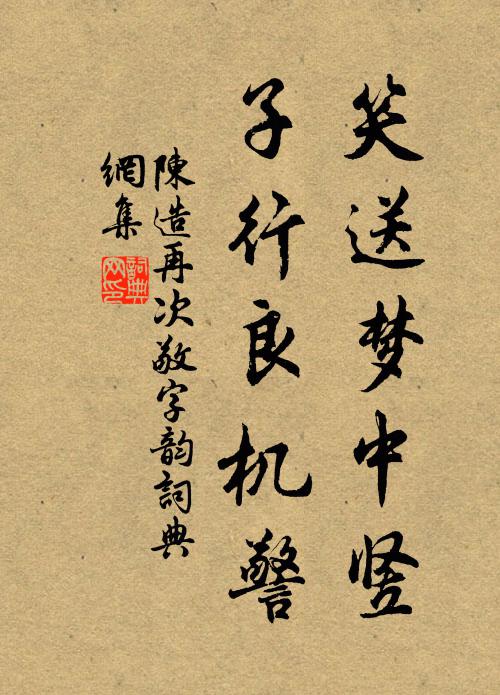 笑送梦中竖
子行良机警
陳造再次敬字韵詞典
網集
詞典網印